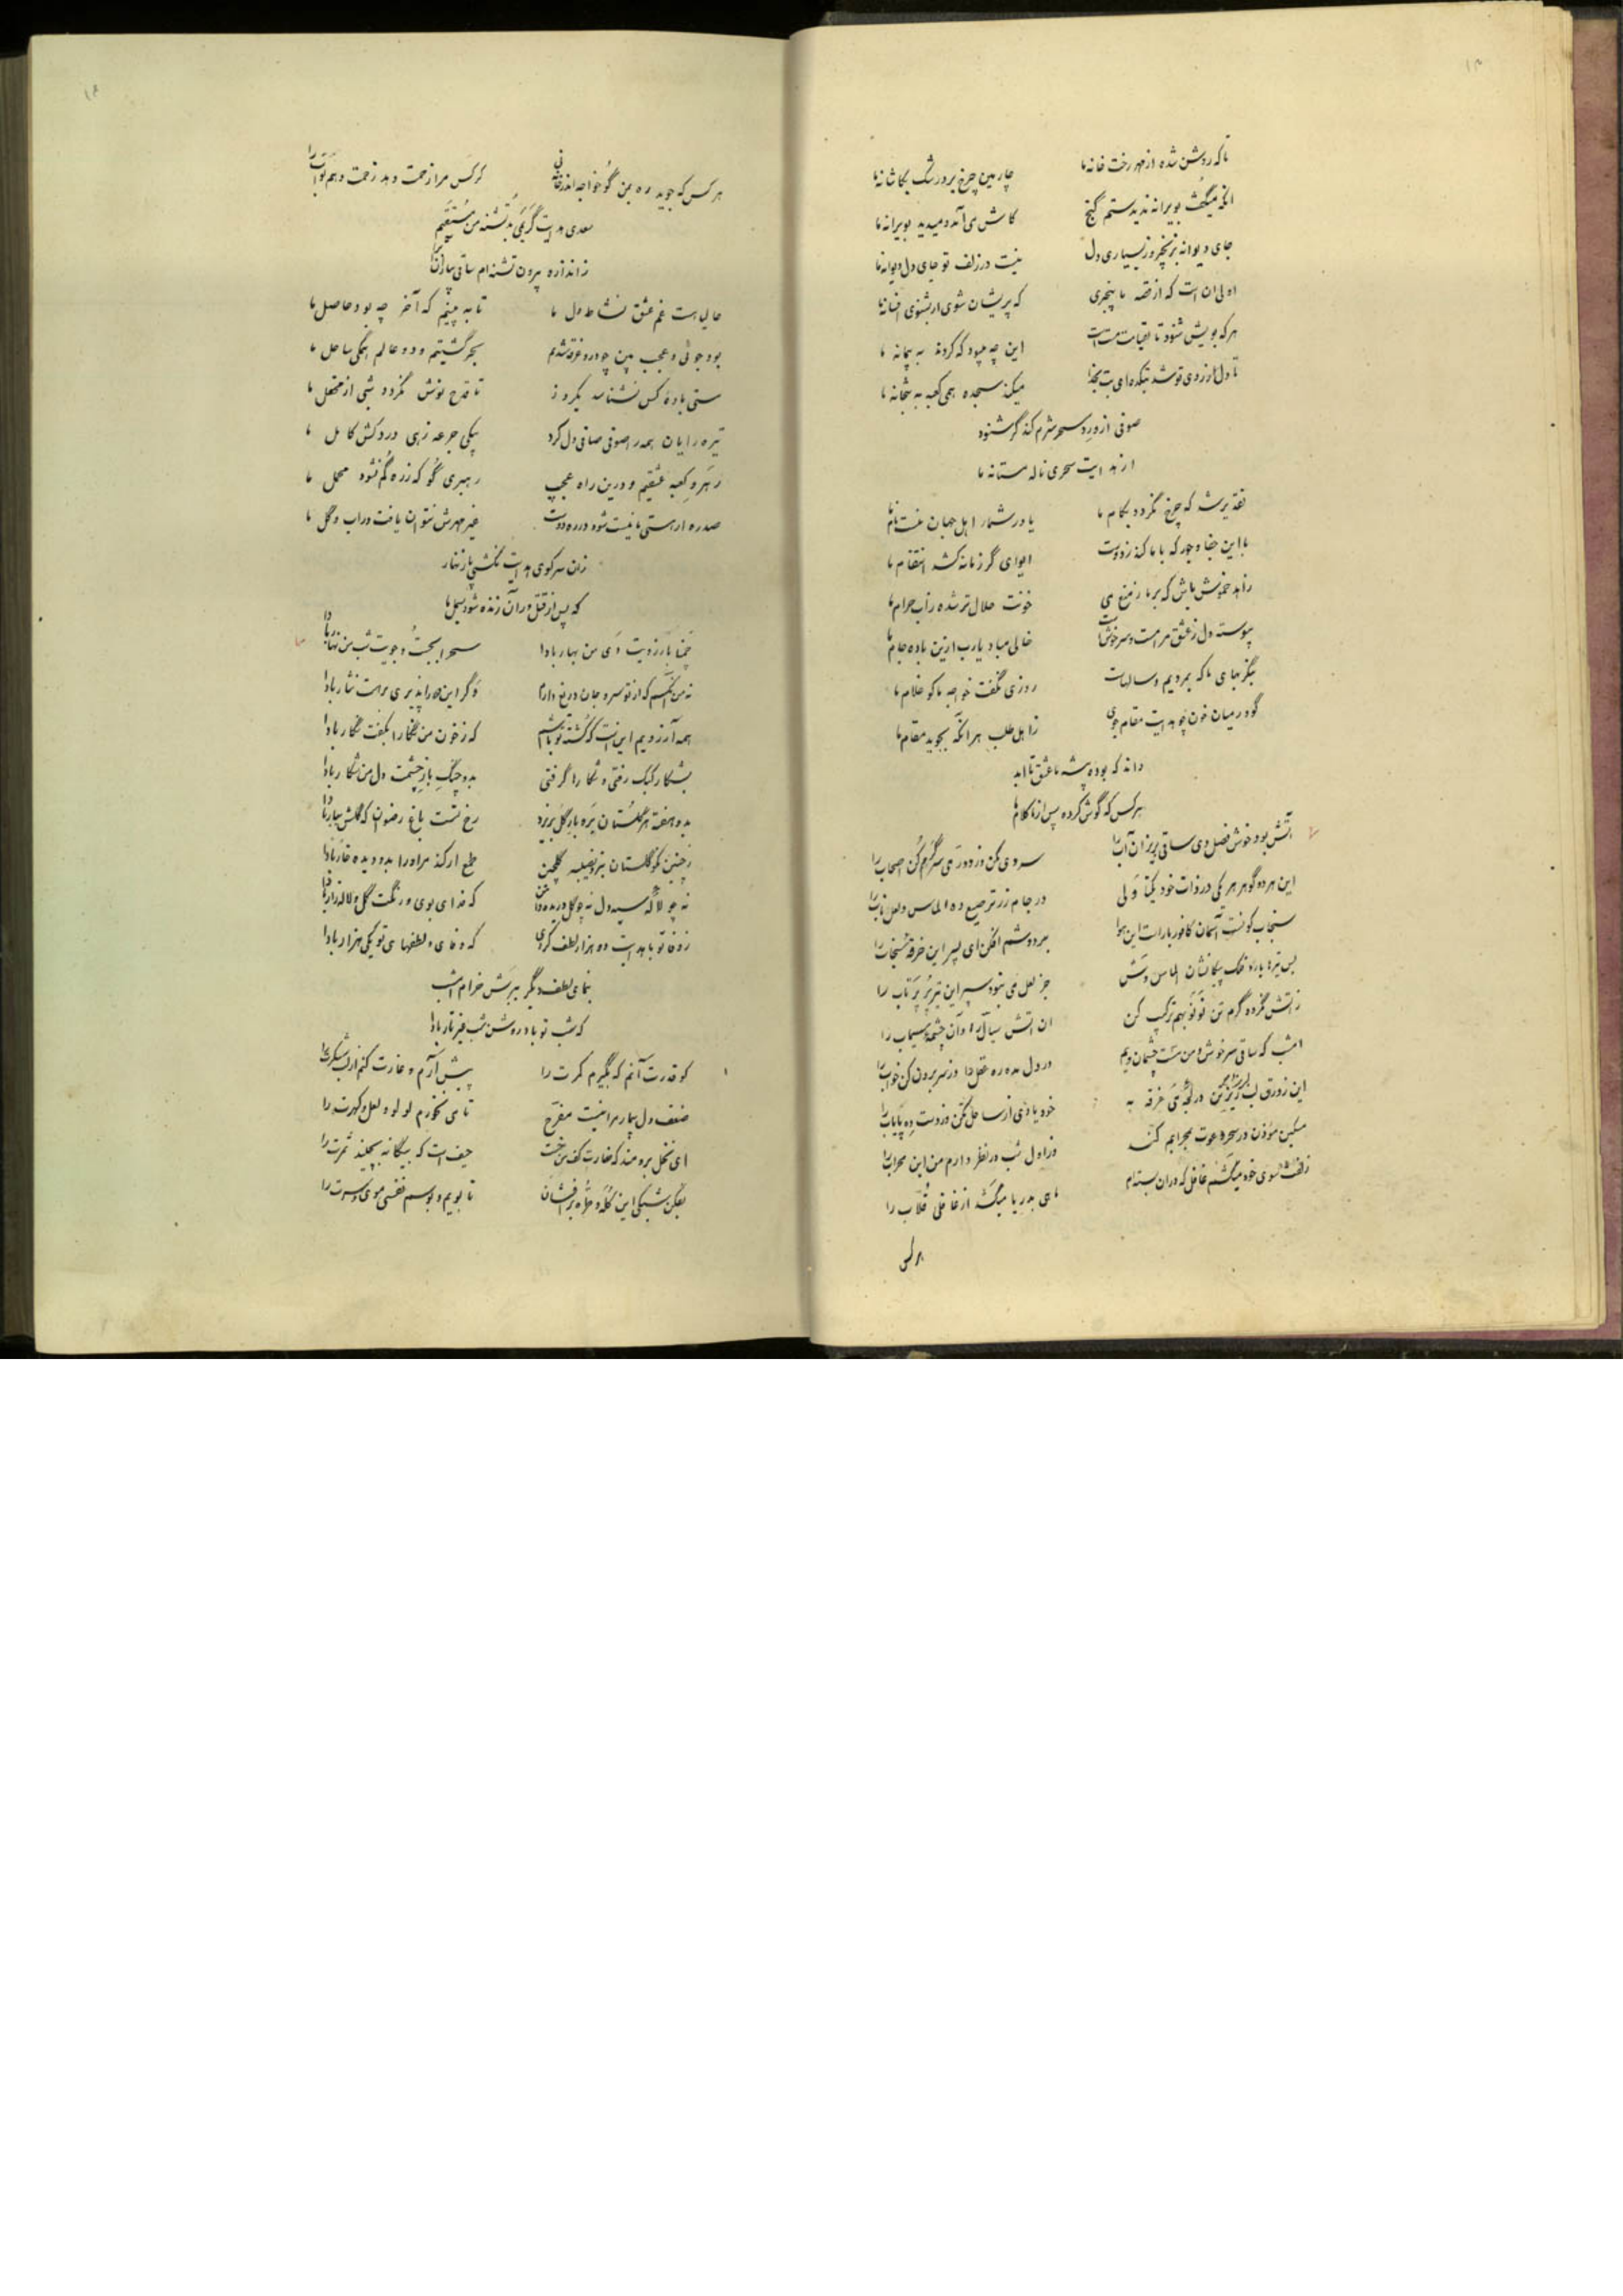 تا که روشن شده از مهر رخت خانهٔ ما    چارمین چرخ برد رشک بکاشانهٔ ما
آنکه میگفت بویرانه ندیدستم گنج    کاش می‌آمد و میدید بویرانهٔ ما
جای دیوانه بزنجیر و ز بسیاری دل    نیست در زلف تو جای دل دیوانهٔ ما
اولی آن است که از قصه ما بیخبری    که پریشان شوی ار بشنوی افسانهٔ ما
هر که بویش شنود تا بقیامت مست است    این چه می بود که کردند به پیمانه ما
تا دل از روی تو شد بتکده ای بت بخدا    میکند سجده همی کعبه به بتخانه ما
صوفی از ورد سحر شرم کند گر شنود
از هدایت سحری ناله مستانه ما
تقدیر شد که چرخ نگردد بکام ما    یا در شمار اهل جهان نیست نام ما
با این جفا و جور که با ما کند ز دوست    ای وای گر زمانه کشد انتقام ما
زاهد خموش باش که بر ما ز منع می    خونت حلال‌تر شده ز آب حرام ما
پیوسته دل ز عشق مرا مست و سرخوش است    خالی مباد یارب ازین باده جام ما
بنگر بجای ما که بمردیم و سالهاست    روزی نگفت خواجه ما کو غلام ما
گو در میان خون چو هدایت مقام جوی    ز اهل طلب هر آنکه بجوید مقام ما
داند که بوده پیشه ما عشق تا ابد
هر کس که گوش کرده پس از ما کلام ما
آتش بود خوش فصل دی ساقی بریز آن آب را    سردی مکن وز دور می سرگرم کن اصحاب را
این هر دو گوهر هر یکی در ذات خود یکتا ولی    در جام زر ترصیع ده الماس و لعل ناب را
سنجاب گونست آسمان کافور بارست این هوا    بر دوشم افکن ای پسر این خرقه سنجاب را
بس تیرها بارد فلک پیکانشان الماس وش    جز لعل می نبود سپر این تیر پر پرتاب را
ز آتش نگردد گرم تن نو نو بهم ترکیب کن    آن آتش سیال را و آن چشمه سیماب را
امشب که ساقی سرخوش و من مست چشمان ویم    در دل مده ره عقل را وز سر برون کن خواب را
این زورق لبریز من در لجه می غرقه به    خود یادی از ساحل مکن وز دست ده پایاب را
مسکین مؤذن در سحر دعوت بمحرابم کند    وز اول شب در نظر دارم من این محراب را
زلفت بسوی خود میکشم غافل که در آن بسته‌ام    ماهی بدریا میکشد از غافلی قلاب را
هر کس
هر کس که جوید ره بمن گو خواجه اندر خانه نی    کز کس مرا زحمت و بد زحمت دهم بواب را
سعدی هدایت گر یکی بد تشنه من مستسقیم
ز اندازه بیرون تشنه‌ام ساقی بیار آن آب را
حالیا هست غم عشق نشاط دل ما    تا به بینیم که آخر چه بود حاصل ما
بود جوئی و عجب بین چو درو غرقه شدیم    بحر گشتیم و دو عالم همگی ساحل ما
مستی باده کس نشناسد یکروز    تا قدح نوش نگردد شبی از محفل ما
تیره رایان همه را صوفی صافی دل کرد    بیکی جرعه زهی دردکش کامل ما
رهرو کعبه عشقیم و درین راه عجب    رهبری گو که ز ره گم نشود محمل ما
صد ره ار هستی ما نیست شود در ره دوست    غیر مهرش نتوان یافت در آب و گل ما
زان سر کوی هدایت نکشی پا زنهار
که پس از قتل در آن زنده شود بسمل ما
چمنا بآرزویت دی من بهار بادا    سحرا بجست و جویت شب من نهار بادا
نه من آنکسم که از تو سر و جان دریغ دارم    و گر این دو را پذیری برهت نثار بادا
همه آرزویم این است که کشته تو باشم    که ز خون من نگارا بکفت نگار بادا
بشکار کبک رفتی و شکار را گرفتی    بدو چنگ باز چشمت دل من شکار بادا
بدو هفته هر گلستان بره باز گل بریزد    رخ تست باغ رضوان که گلش ببار بادا
ز چنین نکو گلستان نبرد نصیبه گلچین    طمع ار کند مر او را بدو دیده خار بادا
نه چو لاله سیه دل نه چو گل دریده دامن    که فدای بوی و رنگت گل و لاله‌زار بادا
ز وفا تو با هدایت دو هزار لطف کردی    که وفای و لطفهای تو یکی هزار بادا
بنمای لطف دیگر ببرش خرام امشب
که شب تو باد روشن شب غیر تار بادا
کو قدرت آنم که بگیرم کمرت را    پیش آرم و غارت کنم از لب شکرت را
ضعف دل بیمار مرا نیست مفرح    تا می نخورم لولو و لعل و گهرت را
ای نخل برومند که غارت کف من خست    حیف است که بیگانه بچیند ثمرت را
بفکن شبکی این کله و طره برافشان    تا بویم و بوسم نفسی موی و سرت را